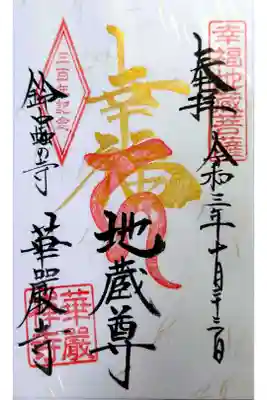 幸福地蔵菩薩
奉拝
令和三年十月
幸福
地蔵尊
三百年紀念
鈴蟲の寺
華嚴寺
華嚴禅寺